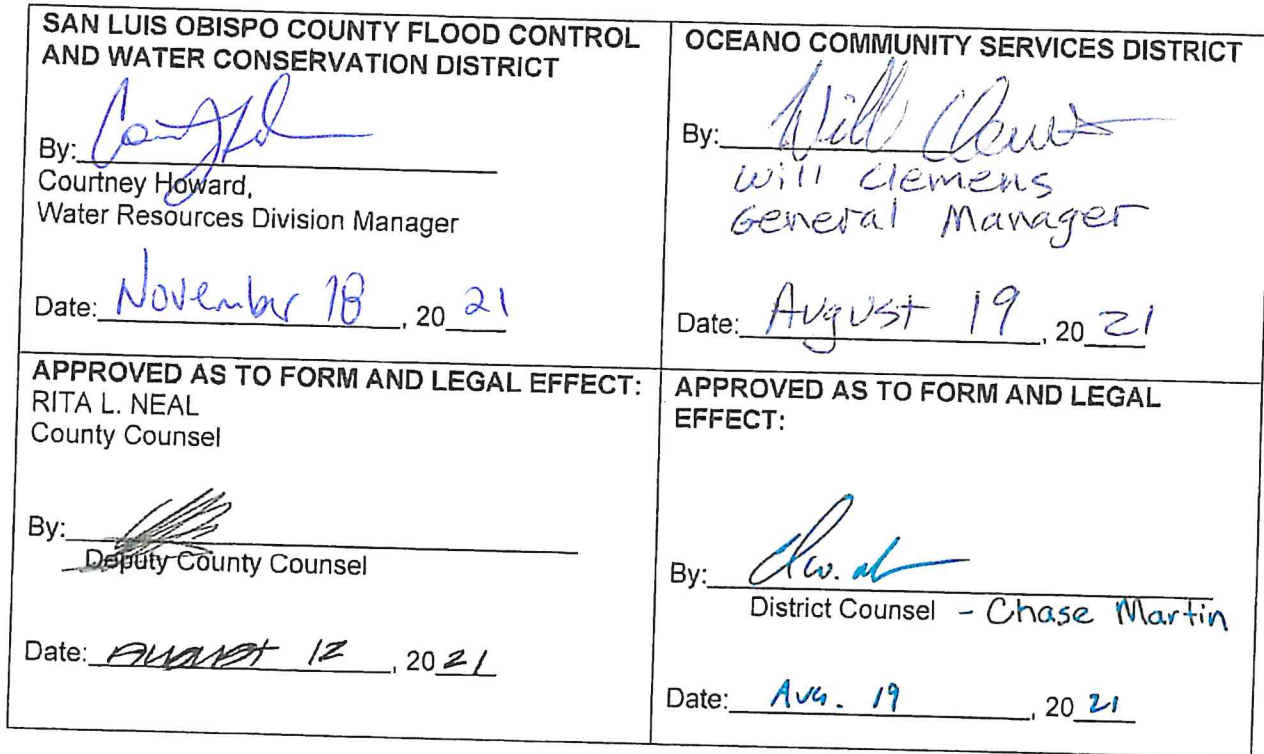 SAN LUIS OBISPO COUNTY FLOOD CONTROL
AND WATER CONSERVATION DISTRICT
By:
Courtney Howard,
Water Resources Division Manager
Date: November 18, 20 21
OCEANO COMMUNITY SERVICES DISTRICT
By: Will Clemens
Will Clemens
General Manager
Date: August 19, 20 21
APPROVED AS TO FORM AND LEGAL EFFECT:
RITA L. NEAL
County Counsel
By:
Deputy County Counsel
Date: August 12, 20 21
APPROVED AS TO FORM AND LEGAL
EFFECT:
By:
District Counsel - Chase Martin
Date: Aug. 19, 20 21